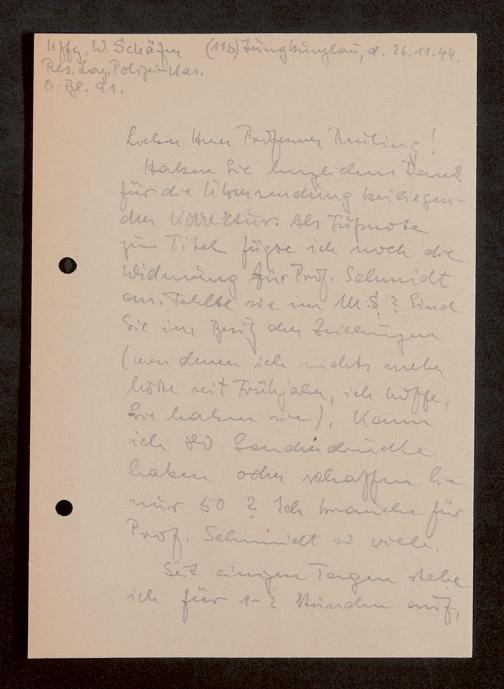 Uffz. W. Schäfer (11b) Jungbunzlau, d. 26.11.44.
Res. Laz. Polizei-Kas.
O-Bl. 91.
Lieber Herr Professor Reuling!
Haben Sie herzlichen Dank
für die Übersendung beiliegen-
der Korrektur. Als Fußnote
zum Titel fügte ich noch die
Widmung für Prof. Schmidt
an. Fehlte sie im M.S.? Sind
Sie im Besitz der Zeichnungen
(von denen ich nichts mehr
hörte seit Frühjahr, ich hoffe,
Sie haben sie). Kann
ich 80 Sonderdrucke
haben oder schaffen Sie
nur 50? Ich brauche für
Prof. Schmidt so viele.
Seit einigen Tagen stehe
ich für 1-2 Stunden auf,